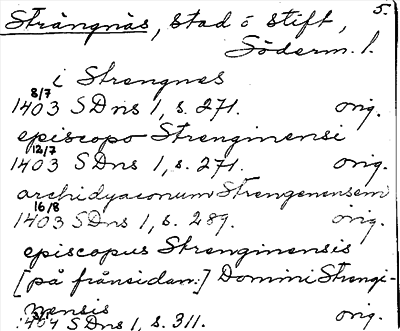 5.
Strängnäs, stad o stift,
Söderm. l.
i Strengnes
8/7
1403 SDns 1, s. 271. orig.
episcopo Strenginensi
12/7
1403 SDns 1, s. 271. orig.
archidyaconum Strengenensem
16/8
1403 SDns 1, s. 289. orig.
episcopus Strenginensis
[på frånsidan:] Domini Strengi-
nensis
1404 SDns 1, s. 311. orig.